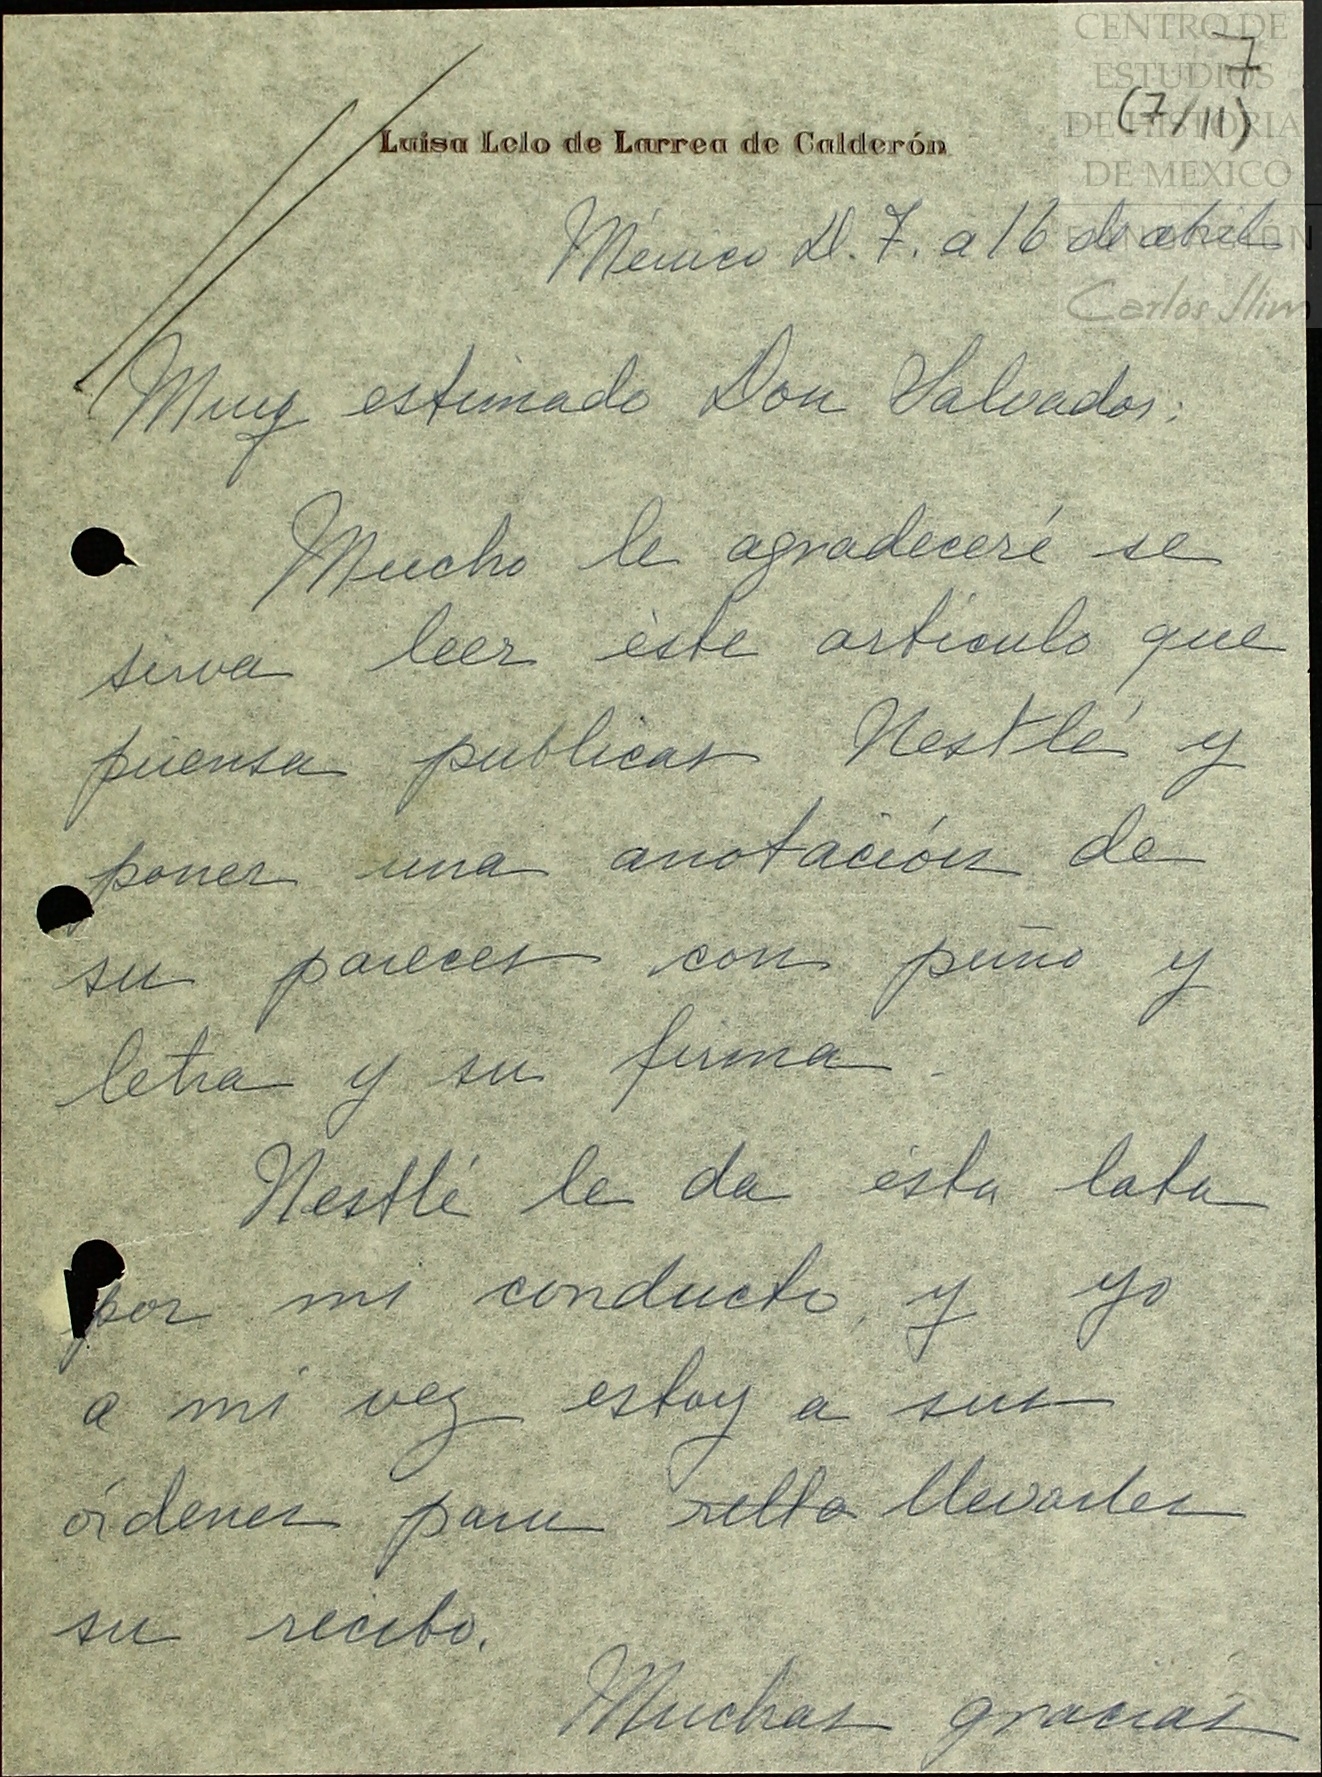 CENTRO DE
ESTUDIOS
DE HISTORIA
DE MEXICO
FUNDACIÓN
Carlos Slim
7
(7/11)
Luisa Lelo de Larrea de Calderón
México D.F. a 16 de abril
Muy estimado Don Salvador:
Mucho le agradeceré se
sirva leer éste artículo que
piensa publicar Nestlé y
poner una anotación de
su parecer con puño y
letra y su firma.
Nestlé le da ésta lata
por mi conducto, y yo
a mi vez estoy a sus
órdenes para llevarles
su recibo.
Muchas gracias